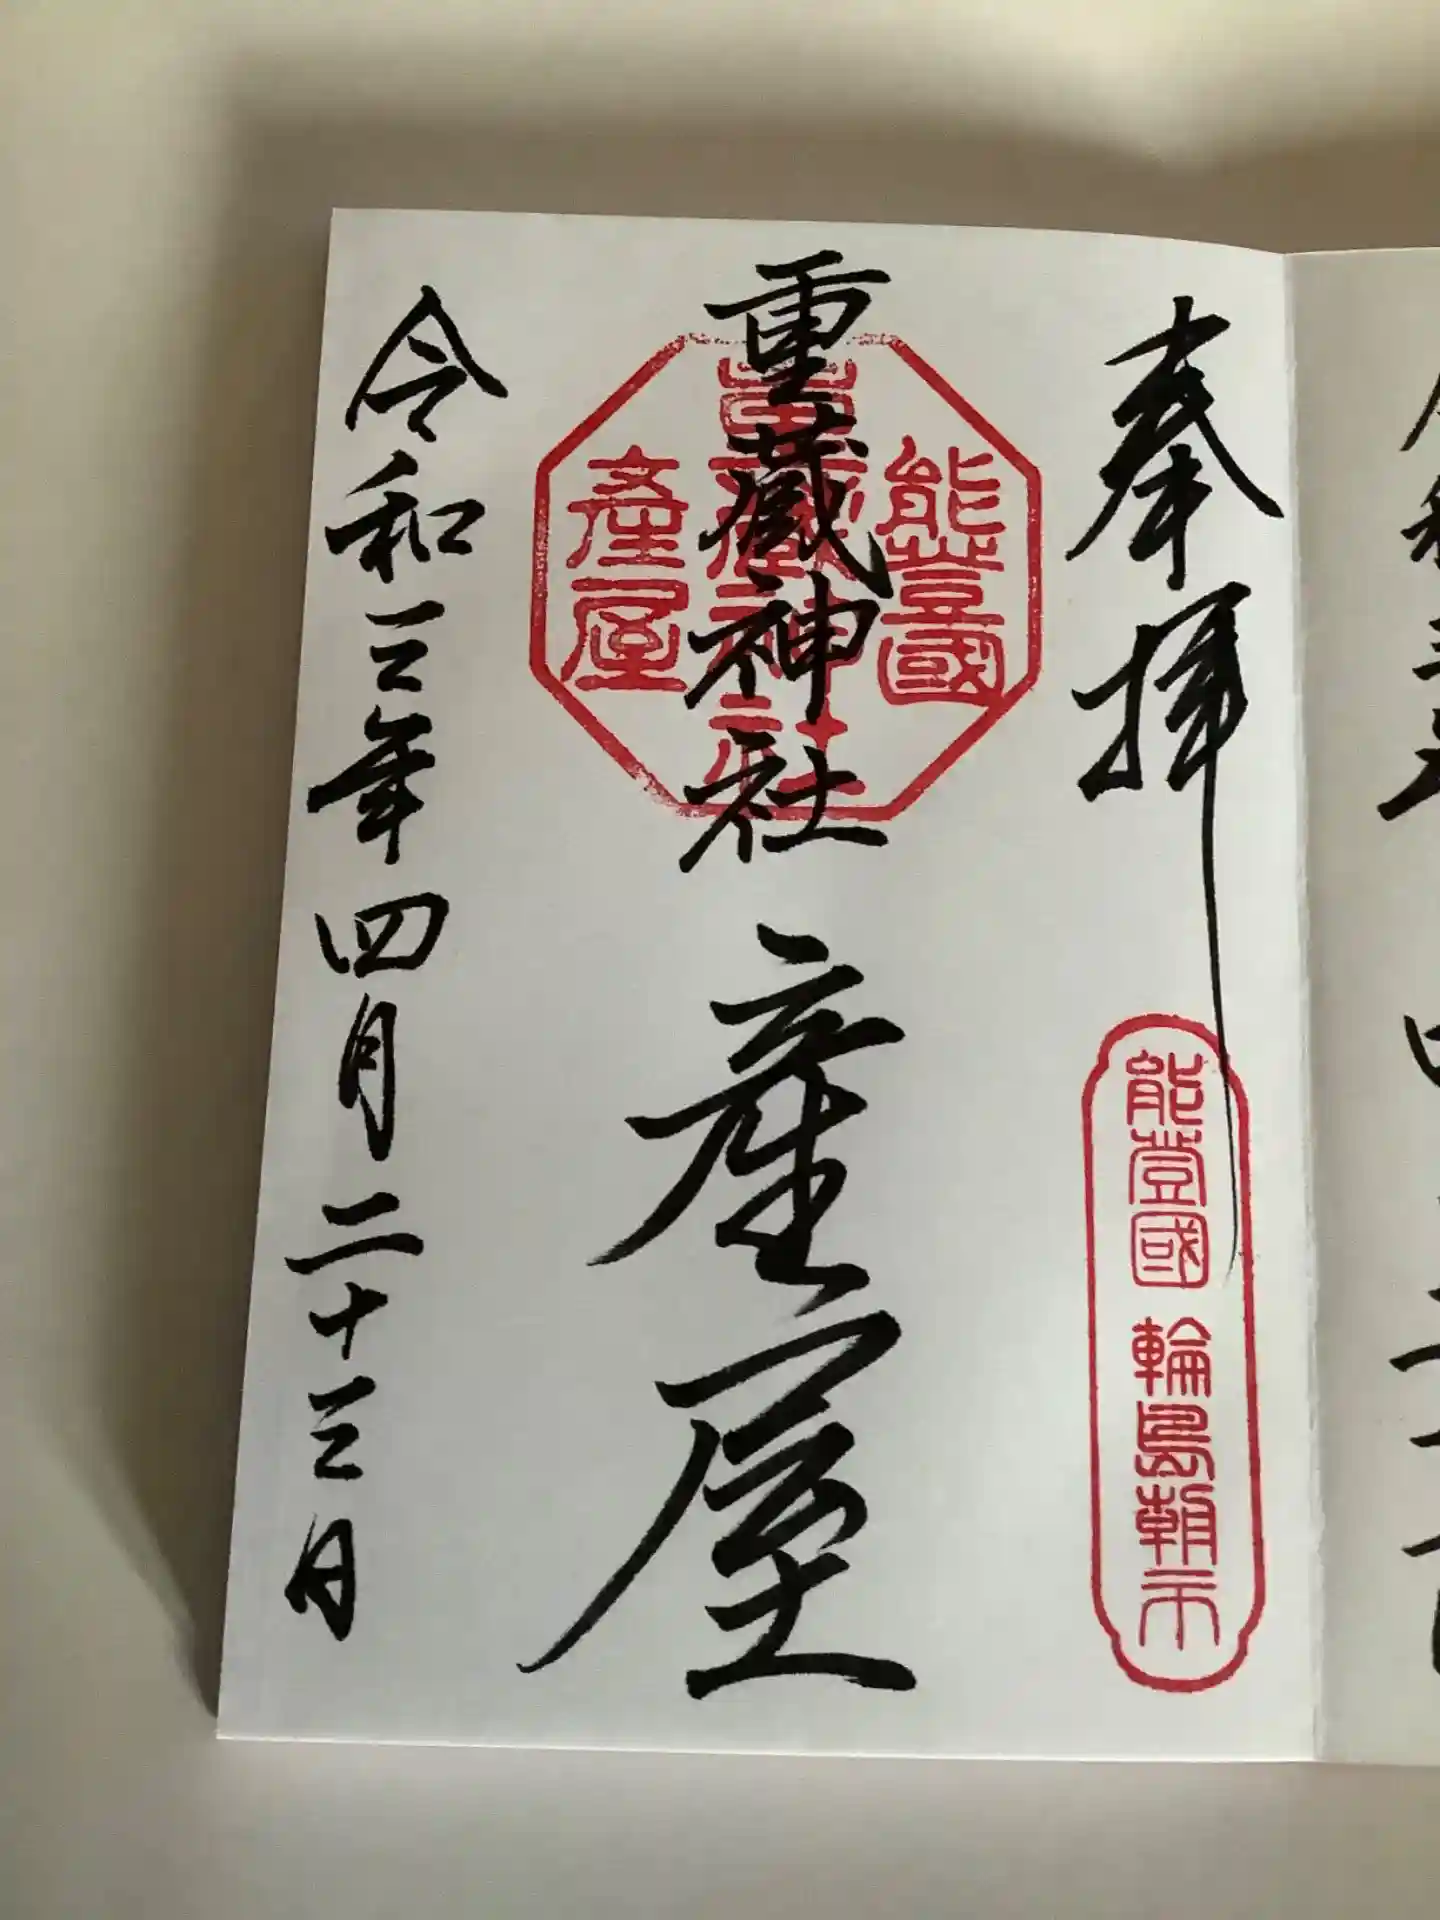 奉拝
能登國 輪島朝市
重蔵神社 産屋
能登國
重蔵神社
産屋
令和三年四月二十三日